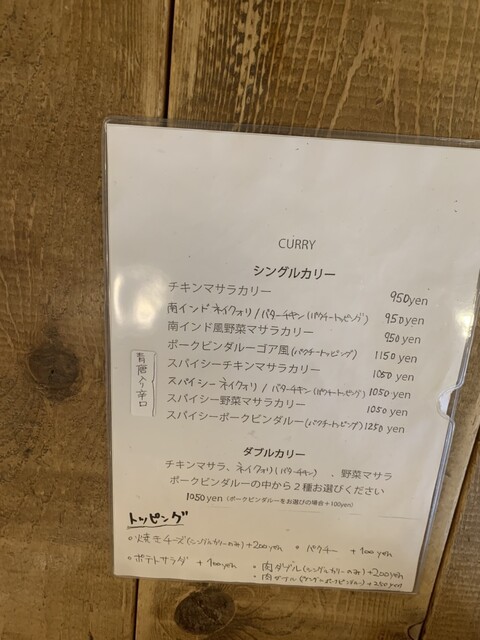 CURRY
シングルカリー
チキンマサラカリー 950yen
南インドネイクォリ/バターチキン(パクチートッピング) 950yen
南インド風野菜マサラカリー 950yen
ポークビンダルーゴア風(パクチートッピング) 1150yen
スパイシーチキンマサラカリー 1050yen
スパイシーネイクォリ/バターチキン(パクチートッピング) 1050yen
スパイシー野菜マサラカリー 1050yen
スパイシーポークビンダルー(パクチートッピング) 1250yen
青唐入り辛口
ダブルカリー
チキンマサラ、ネイクォリ(バターチキン)、野菜マサラ
ポークビンダルーの中から2種お選びください
1050yen(ポークビンダルーをお選びの場合+100yen)
トッピング
・焼きチーズ(シングルカリーのみ)+200yen ・パクチー +100yen
・ポテトサラダ +100yen ・肉ダブル(シングルカリーのみ)+200yen
・肉ダブル(シングルポークビンダルー)+250yen